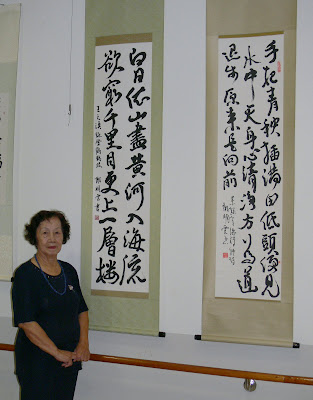 手把青秧插滿田低頭便見
水中天身心清淨方為道
退步原來是向前
白日依山盡黃河入海流
欲窮千里目更上一層樓